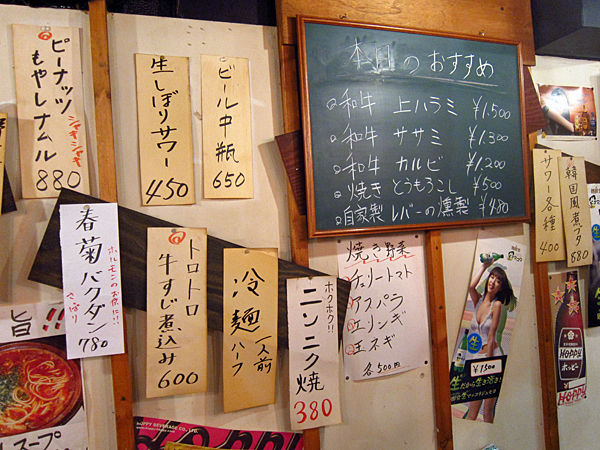 ピーナッツ
もやしナムル
シャキシャキ
880
生しぼりサワー
450
ビール中瓶
650
本日のおすすめ
和牛 上ハラミ ¥1.500
和牛 ササミ ¥1.300
和牛 カルビ ¥1.200
焼きとうもろこし ¥500
自家製レバーの燻製 ¥480
サワー各種
400
韓国風煮ブタ
880
春菊バクダン
ホルモンのお供に!!
さっぱり
780
トロトロ
牛すじ煮込み
600
冷麺 一人前
ハーフ
ホクホク!!
ニンニク焼
380
焼き野菜
チェリートマト
アスパラ
エリンギ
玉ネギ
各500円
¥1500
生だから生き活き!
旨!!
スープ
HOPPY BEVERAGE CO., LTD.
HOPPY
ホッピー
HOPPY